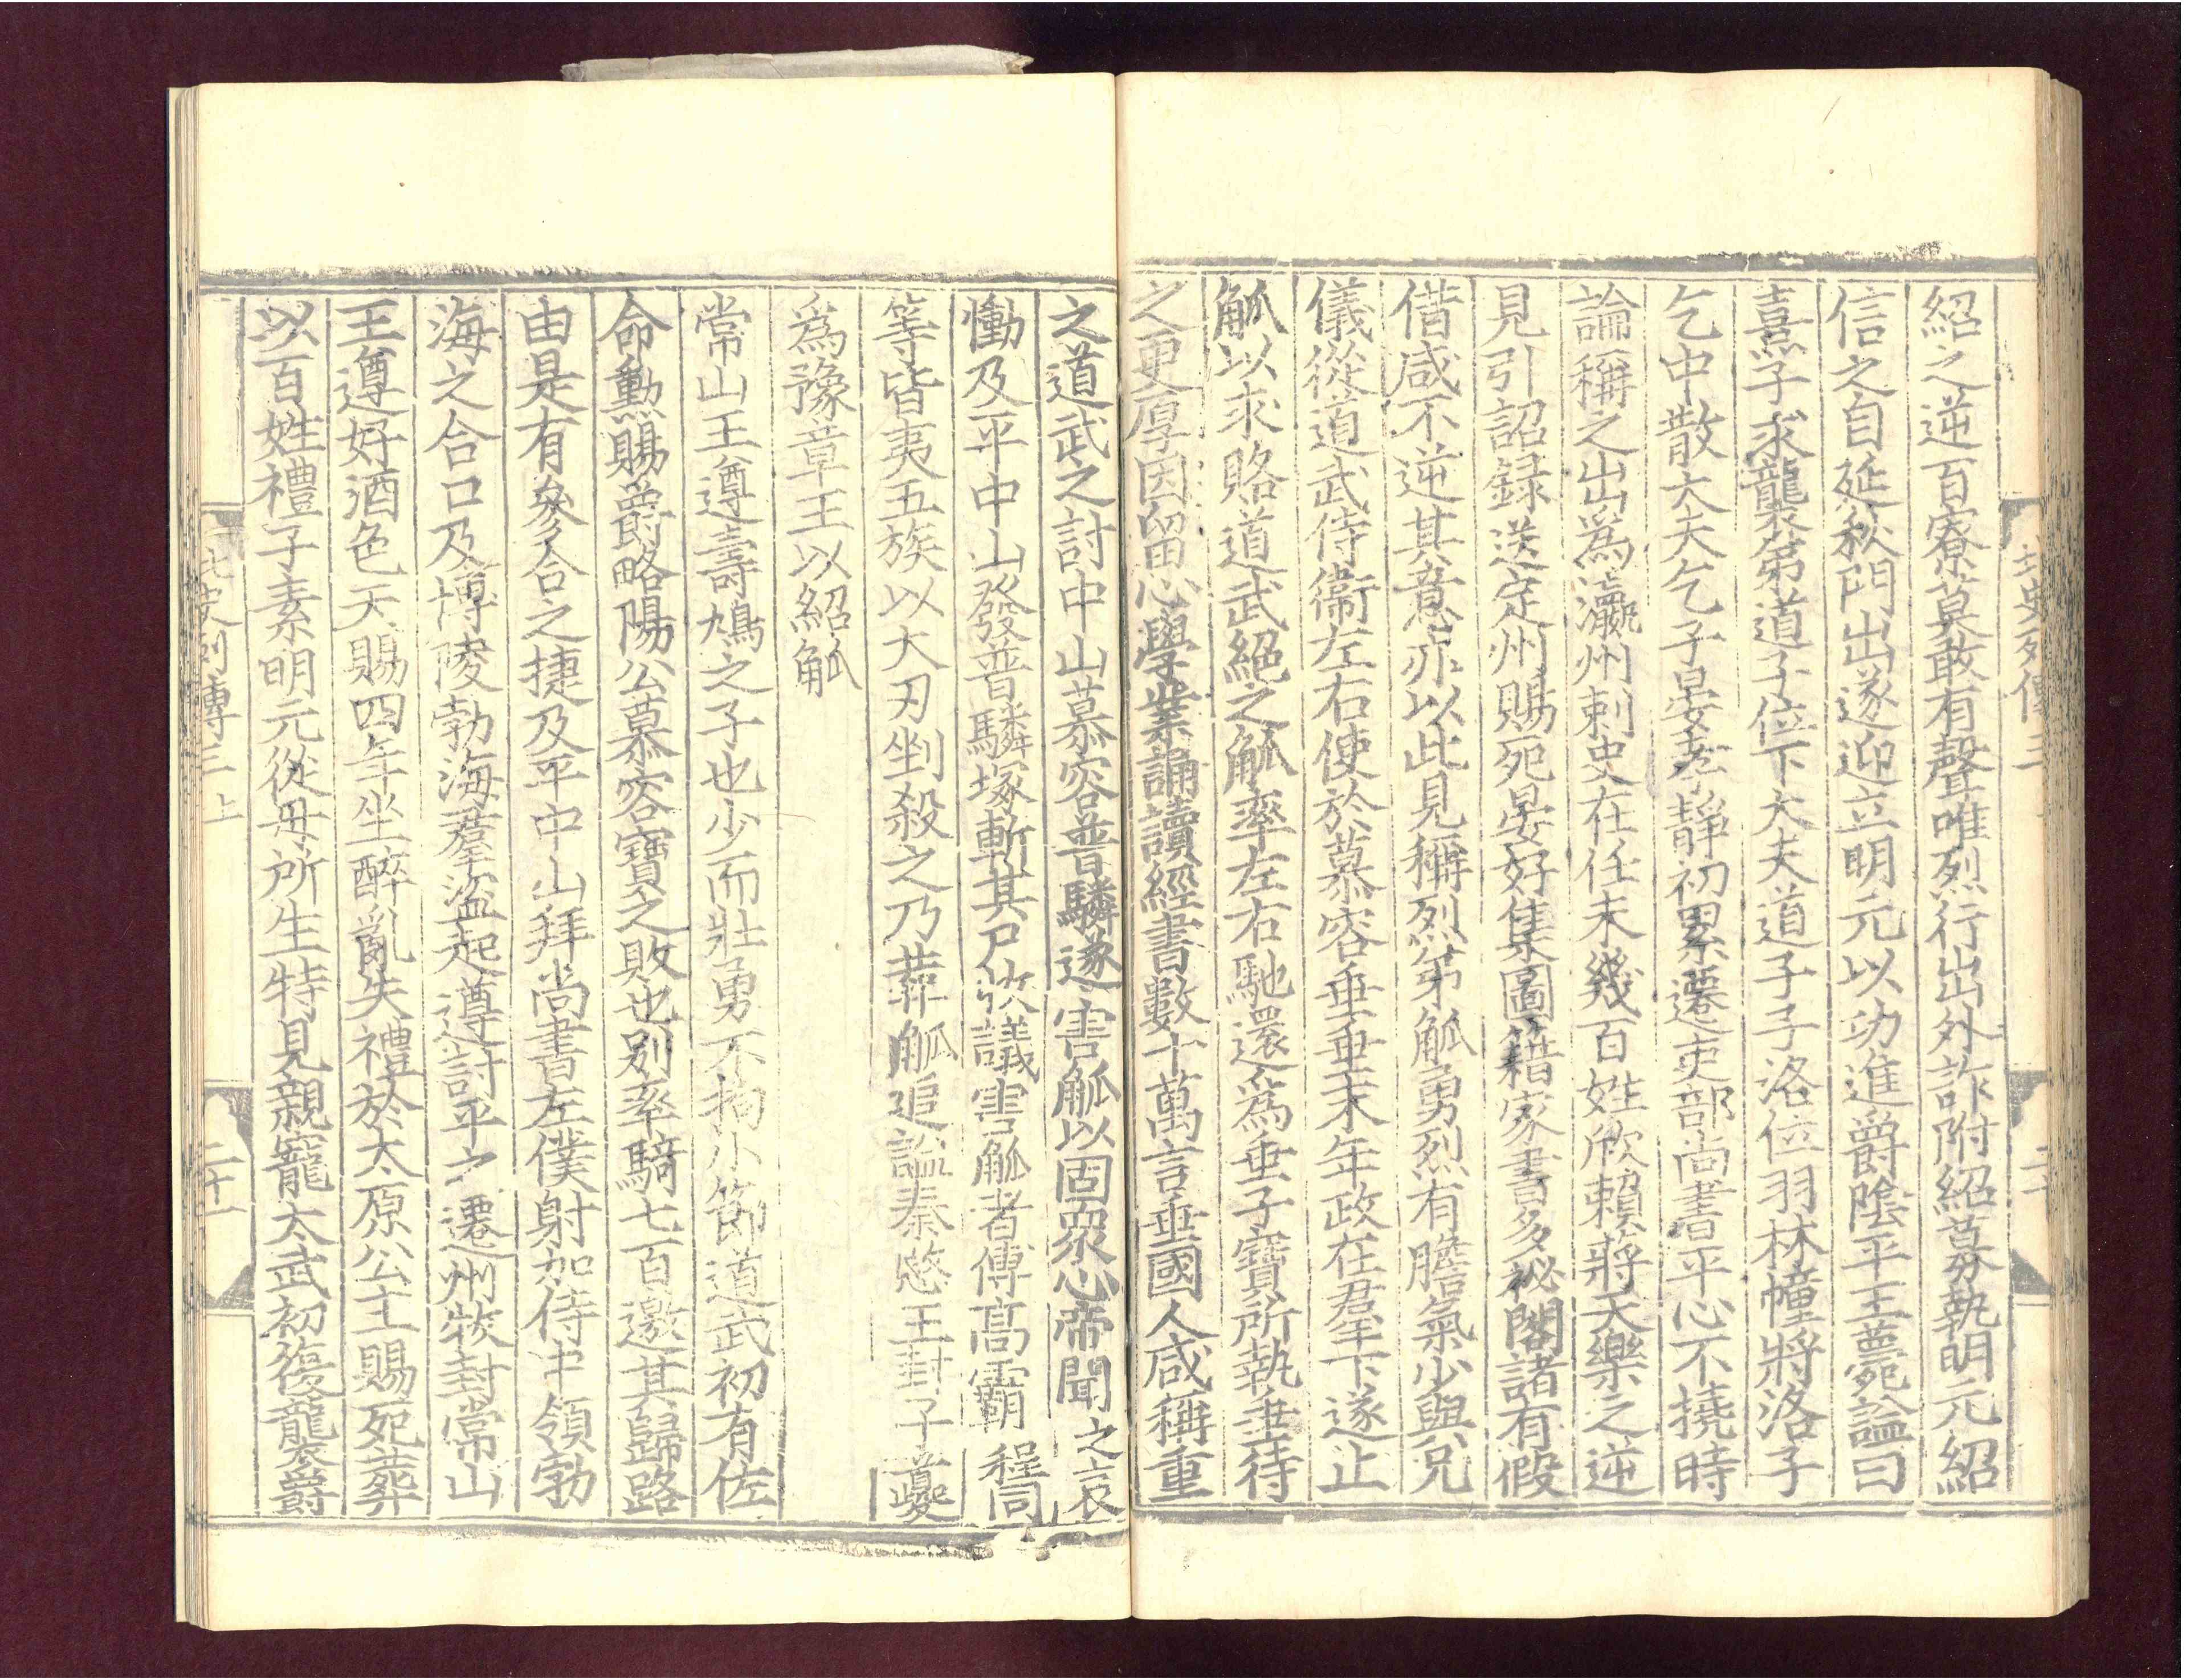 北史列傳三
二十
紹之逆百寮莫敢有聲唯烈行出外詐附紹募執明元紹
信之自延秋門出遂迎立明元以功進爵陰平王薨謚曰
熹子求襲弟道子位下大夫道子子洛位羽林幢將洛子
乞中散大夫乞子晏孝靜初累遷吏部尚書平心不撓時
論稱之出爲瀛州刺史在任未幾百姓欣賴蔣天樂之逆
見引詔録送定州賜死晏好集圖籍家書多祕閣諸有假
借咸不逆其意亦以此見稱烈弟觚勇烈有膽氣少與兄
儀從道武侍衞左右使於慕容垂垂末年政在羣下遂止
觚以求賂道武絕之觚率左右馳還爲垂子寶所執垂待
之更厚因留心學業誦讀經書數十萬言垂國人咸稱重
之道武之討中山慕容普驎遂害觚以固衆心帝聞之哀
慟及平中山發普驎塚斬其尸收議害觚者傅高霸程同
等皆夷五族以大刃剉殺之乃葬觚追謚秦愍王封子夔
爲豫章王以紹觚
常山王遵壽鳩之子也少而壯勇不拘小節道武初有佐
命勲賜爵略陽公慕容寶之敗也别率騎七百邀其歸路
由是有參合之捷及平中山拜尚書左僕射加侍中領勃
海之合口及博陵勃海羣盜起遵討平之遷州牧封常山
王遵好酒色天賜四年坐醉亂失禮於太原公主賜死葬
以百姓禮子素明元從母所生特見親寵太武初復襲爵
北史列傳三上
二十一